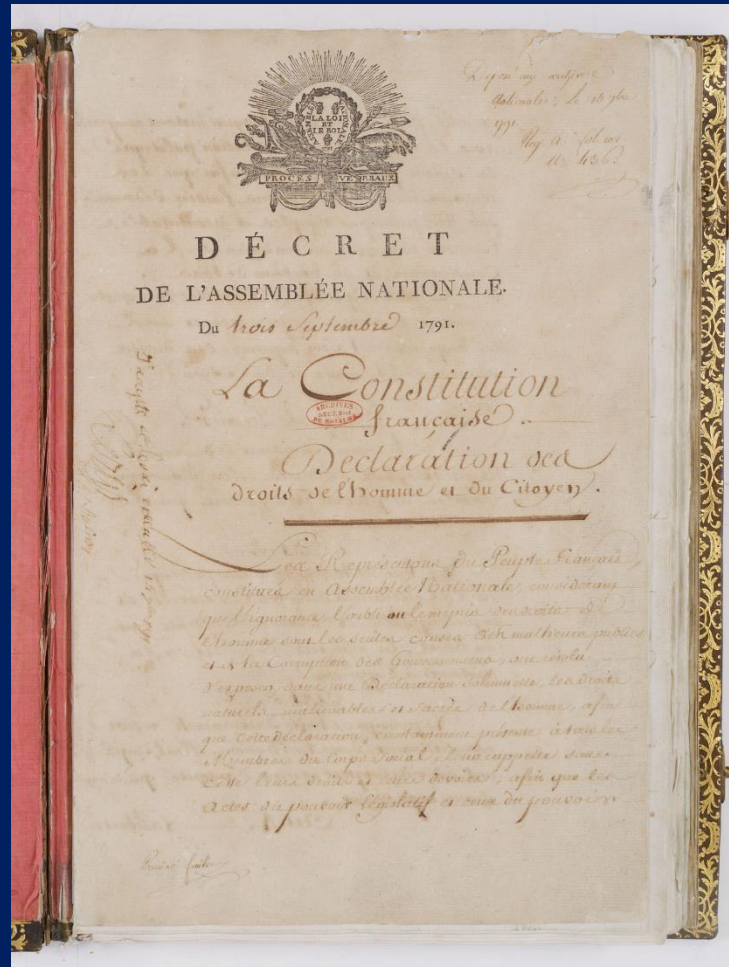 LA LOI
ET
LE ROI
PROCÈS VERBAUX
Déposé aux archives
nationales, le 15 7bre
1791
DÉCRET
DE L'ASSEMBLÉE NATIONALE.
Du trois Septembre 1791.
La Constitution
française.
ARCHIVES
Declaration des
droits de l'homme et du Citoyen.
Les Représentans du Peuple Français,
constitués en Assemblée Nationale, considerant
que l'ignorance, l'oubli ou le mépris des droits de
l'homme sont les seules causes des malheurs publics
et de la Corruption des Gouvernemens, ont résolu
d'exposer dans une Déclaration solemnelle, les droits
naturels, inaliénables et sacrés de l'homme, afin
que cette déclaration, constamment présente à tous les
Membres du Corps Social, leur rappelle sans
cesse leurs droits et leurs devoirs; afin que les
Actes du pouvoir législatif et ceux du pouvoir
J'accepte et ferai exécuter 14 7bre 1791
Louis